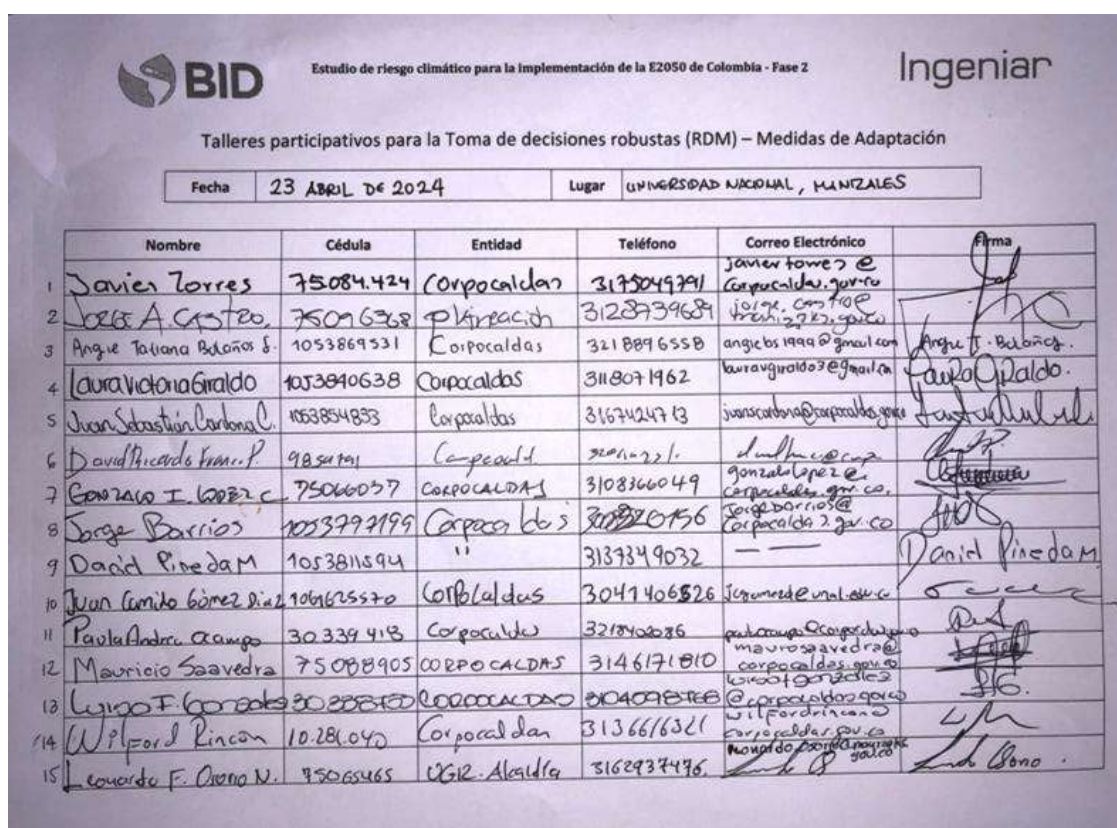 BID
Estudio de riesgo climático para la implementación de la E2050 de Colombia - Fase 2
Ingeniar
Talleres participativos para la Toma de decisiones robustas (RDM) – Medidas de Adaptación
Fecha 23 ABRIL DE 2024 Lugar UNIVERSIDAD NACIONAL, MANIZALES
Nombre Cédula Entidad Teléfono Correo Electrónico Firma
1 Javier Torres 75084.424 Corpocaldas 3175049791 javier torres @
2 JORGE A. CASTRO. 75096368 3128739689
3 Angie Tatiana Bolaños S. 1053869531 Corpocaldas 3218896558 angiebs1999@gmail.com Angie T. Bolaños.
4 Laura Victoria Giraldo 1053840638 Corpocaldas 3118071962 lauravgiraldo3@gmail.com Laura Giraldo.
5 Juan Sebastián Cardona C. 1053854833 Corpocaldas 3167424713
6 David Ricardo
7 GONZALO I. LOPEZ C. 75066037 CORPOCALDAS 3108366049 gonzalolopez@
corpocaldas.gov.co.
8 Jorge Barrios 1053797199 Corpocaldas Jorgebarrios@
corpocaldas.gov.co
9 David Pineda M 1053811594 " 3137349032 — — Daniel Pineda M
10 Juan Camilo Gómez Díaz Corpocaldas 3041406526
11 Paula Andrea Ocampo 30339418 Corpocaldas
12 Mauricio Saavedra 75088905 CORPOCALDAS 3146171810 maurosaavedra@
corpocaldas.gov.co
13 CORPOCALDAS
@corpocaldas.gov.co
14 Wilford Rincón 10.281.040 Corpocaldas 3136616321 wilfordrincon@
corpocaldas.gov.co
15 Leonardo F. Osorio N. 75065465 UGR. Alcaldía 3162937476.